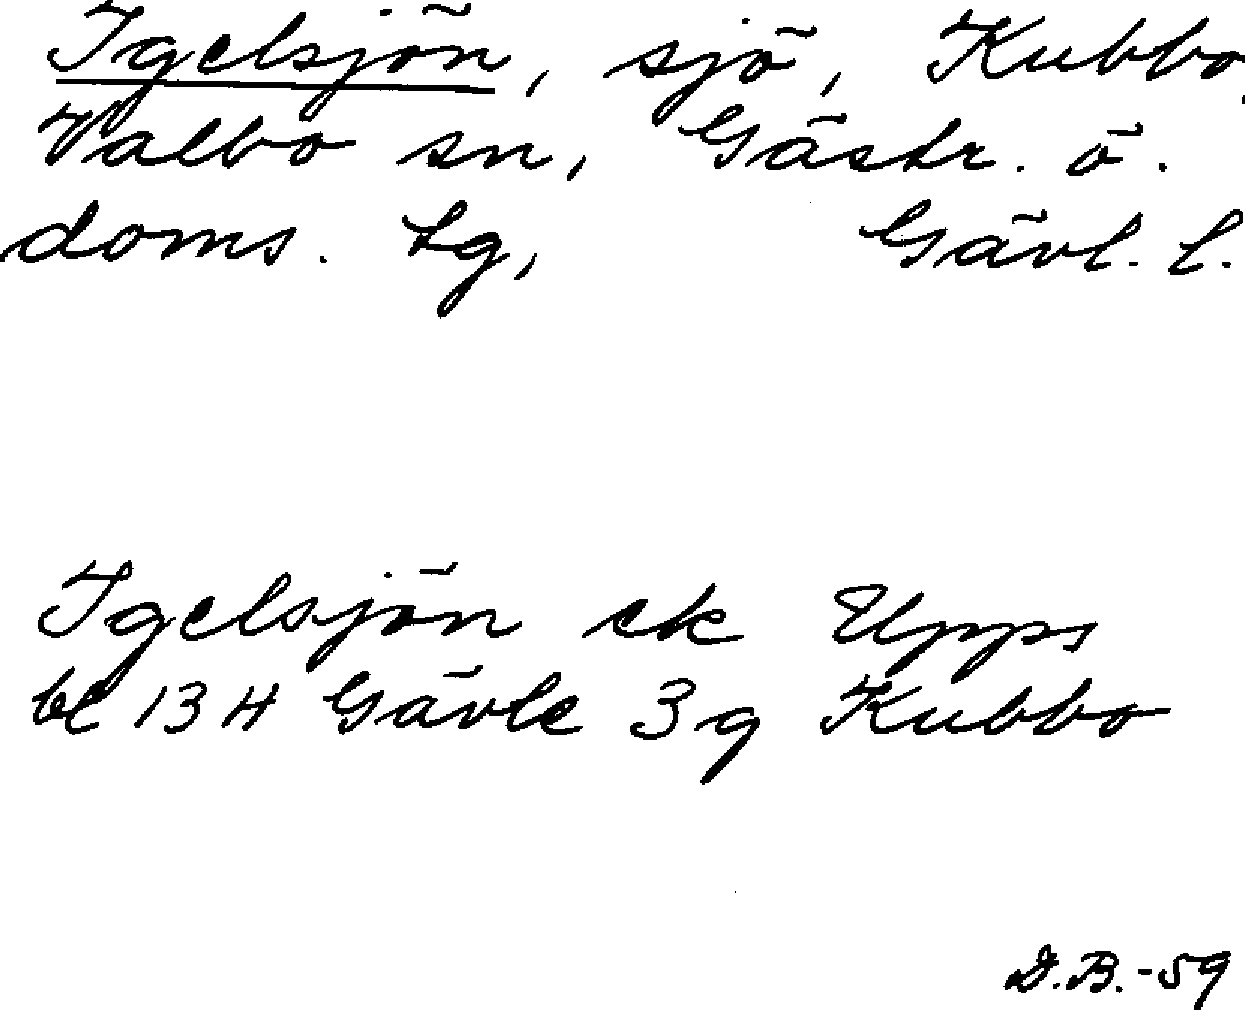 Igelsjön, sjö, Kubbo,
Valbo sn, Gästr. ö.
doms. lg, Gävl. l.
Igelsjön ek Upps
bl 13 H Gävle 3 g Kubbo
D.B.-59